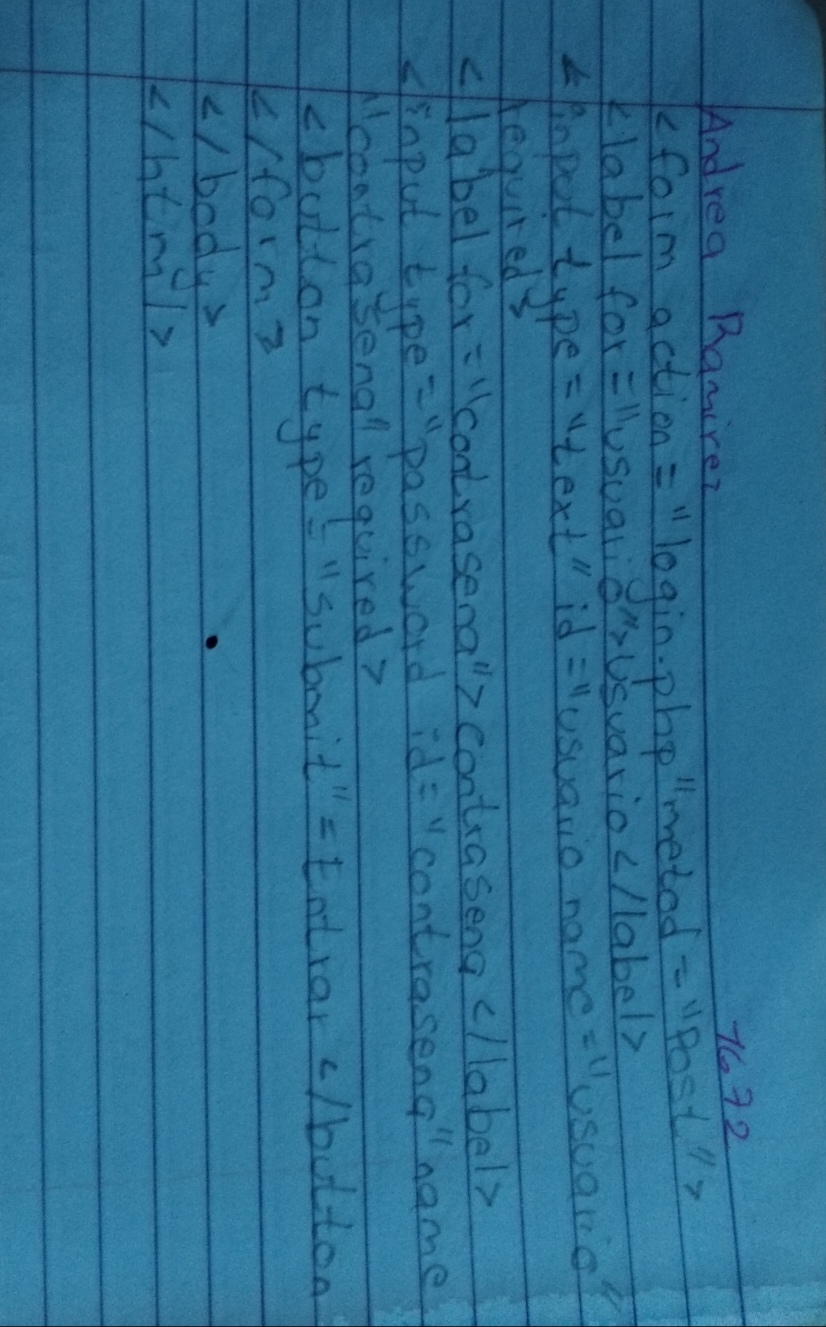 Andrea Ramirez 7672
<form action="login.php" metod="Post">
<label for="usuario">Usuario</label>
<input type="text" id="usuario name="usuario"
required>
<label for="contrasena">contrasena</label>
<input type="password id="contrasena" name
"contraseña" required>
<button type="submit"=Entrar </button
</form>
</body>
</html>